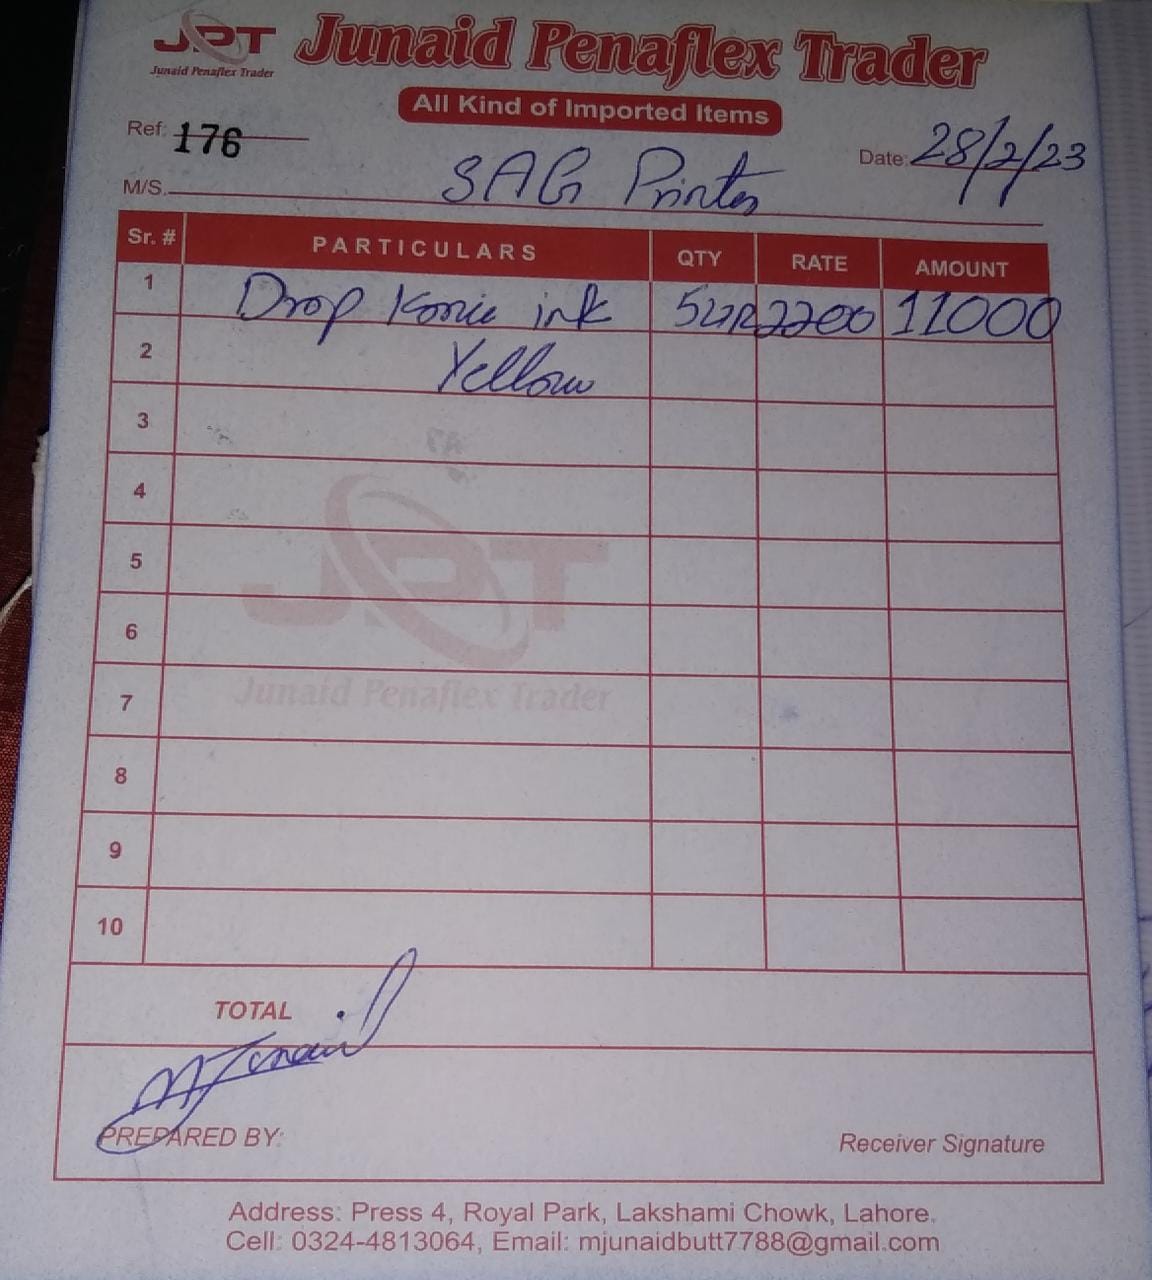 JPT Junaid Penaflex Trader
Junaid Penaflex Trader
All Kind of Imported Items
Ref: 176
Date: 28/2/23
M/S. SAG Printers
Sr. # PARTICULARS QTY RATE AMOUNT
1 Drop Konic ink 5LTR 2200 11000
2 Yellow
3
4
5
6
7
8
9
10
JPT
Junaid Penaflex Trader
TOTAL
M Junaid
PREPARED BY:
Receiver Signature
Address: Press 4, Royal Park, Lakshami Chowk, Lahore.
Cell: 0324-4813064, Email: mjunaidbutt7788@gmail.com